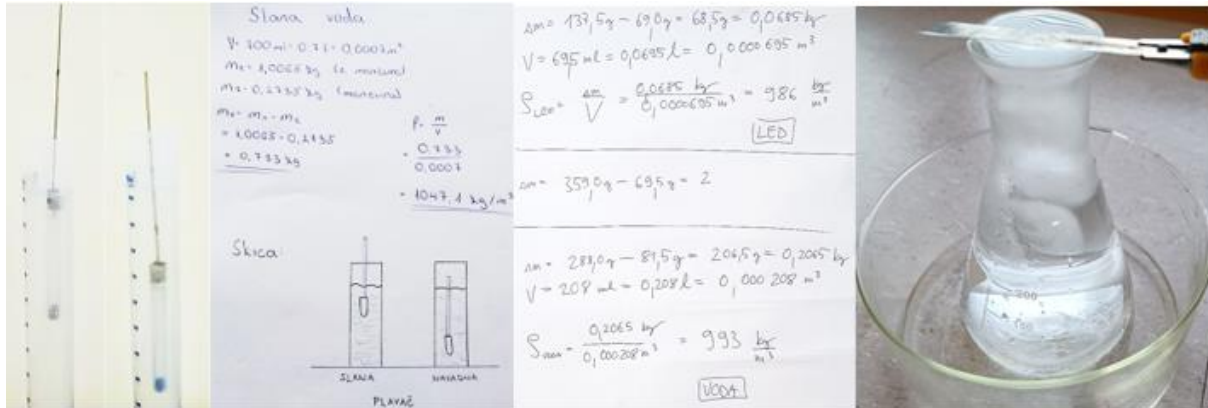 Slana voda
V = 700 ml = 0.7 l = 0,0007 m³
m₁ = 1,0065 kg (z menzuro)
m₂ = 0,2735 kg (menzura)
= 1,0065 - 0,2735
= 0,733 kg
ρ = m/V
= 0,733/0,0007
= 1047,1 kg/m³
Skica:
SLANA NAVADNA
PLAVAČ
Δm = 137,5g - 69,0g = 68,5g = 0,0685 kg
V = 69,5 ml = 0,0695 l = 0,0000695 m³
= Δm/V = 0,0685 kg/0,0000695 m³ = 986 kg/m³
LED
Δm = 359,0g - 69,5g = 2
Δm = 288,0g - 81,5g = 206,5g = 0,2065 kg
V = 208 ml = 0,208 l = 0,000208 m³
= 0,2065 kg/0,000208 m³ = 993 kg/m³
VODA
200